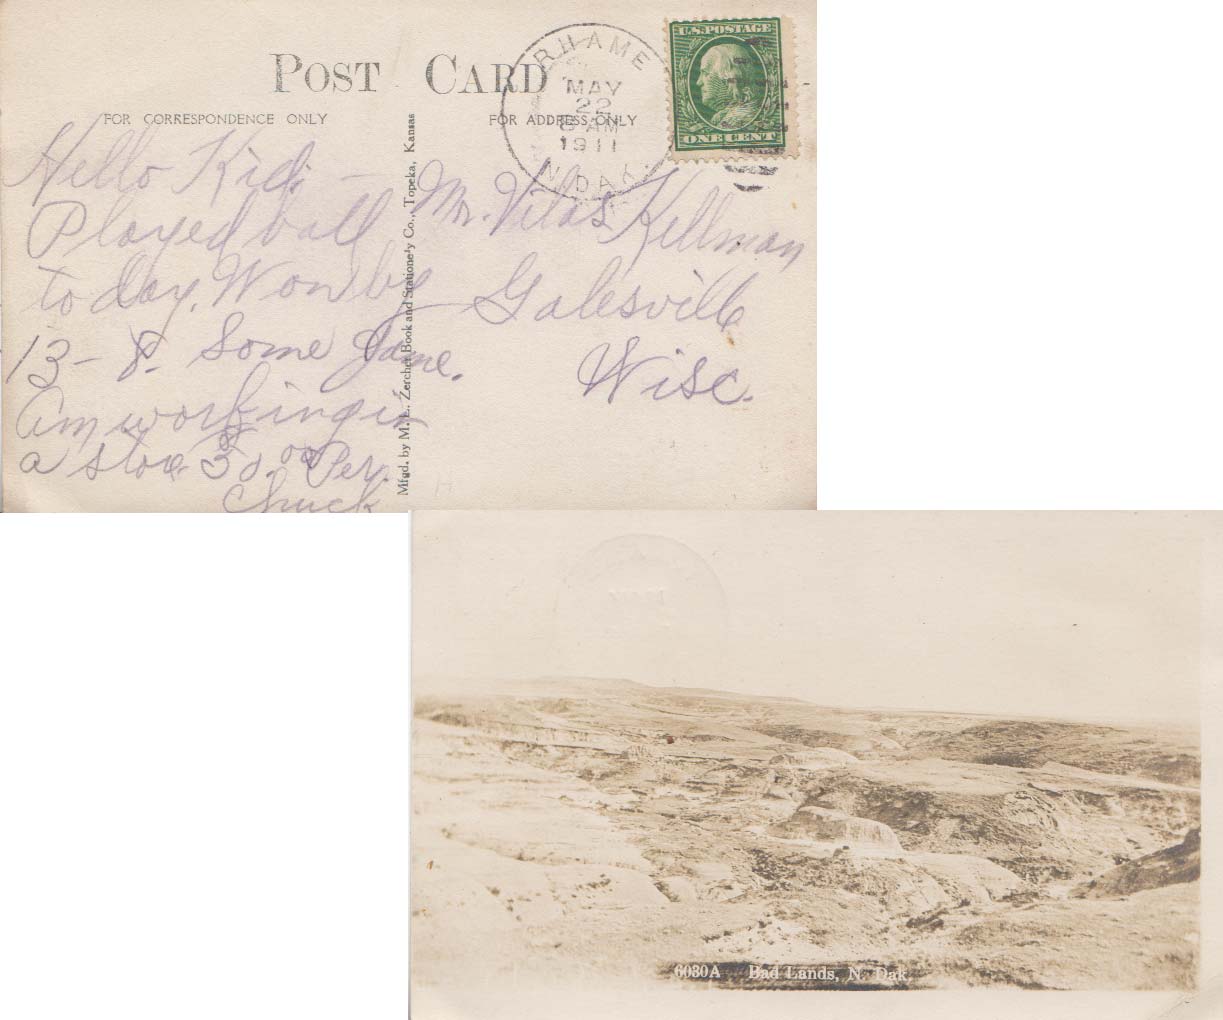 POST CARD
FOR CORRESPONDENCE ONLY
FOR ADDRESS ONLY
RHAME
MAY
22
8 AM
1911
N. DAK.
U.S. POSTAGE
ONE CENT
Hello Kid; —
Played ball
to day. Won by
13 - 8. Some Game.
Am working in
a store 30.00 Per.
Chuck
Mfgd. by M. L. Zercher Book and Stationery Co., Topeka, Kansas
Mr. Vilas Kellman
Galesville
Wisc.
6030A Bad Lands, N. Dak.